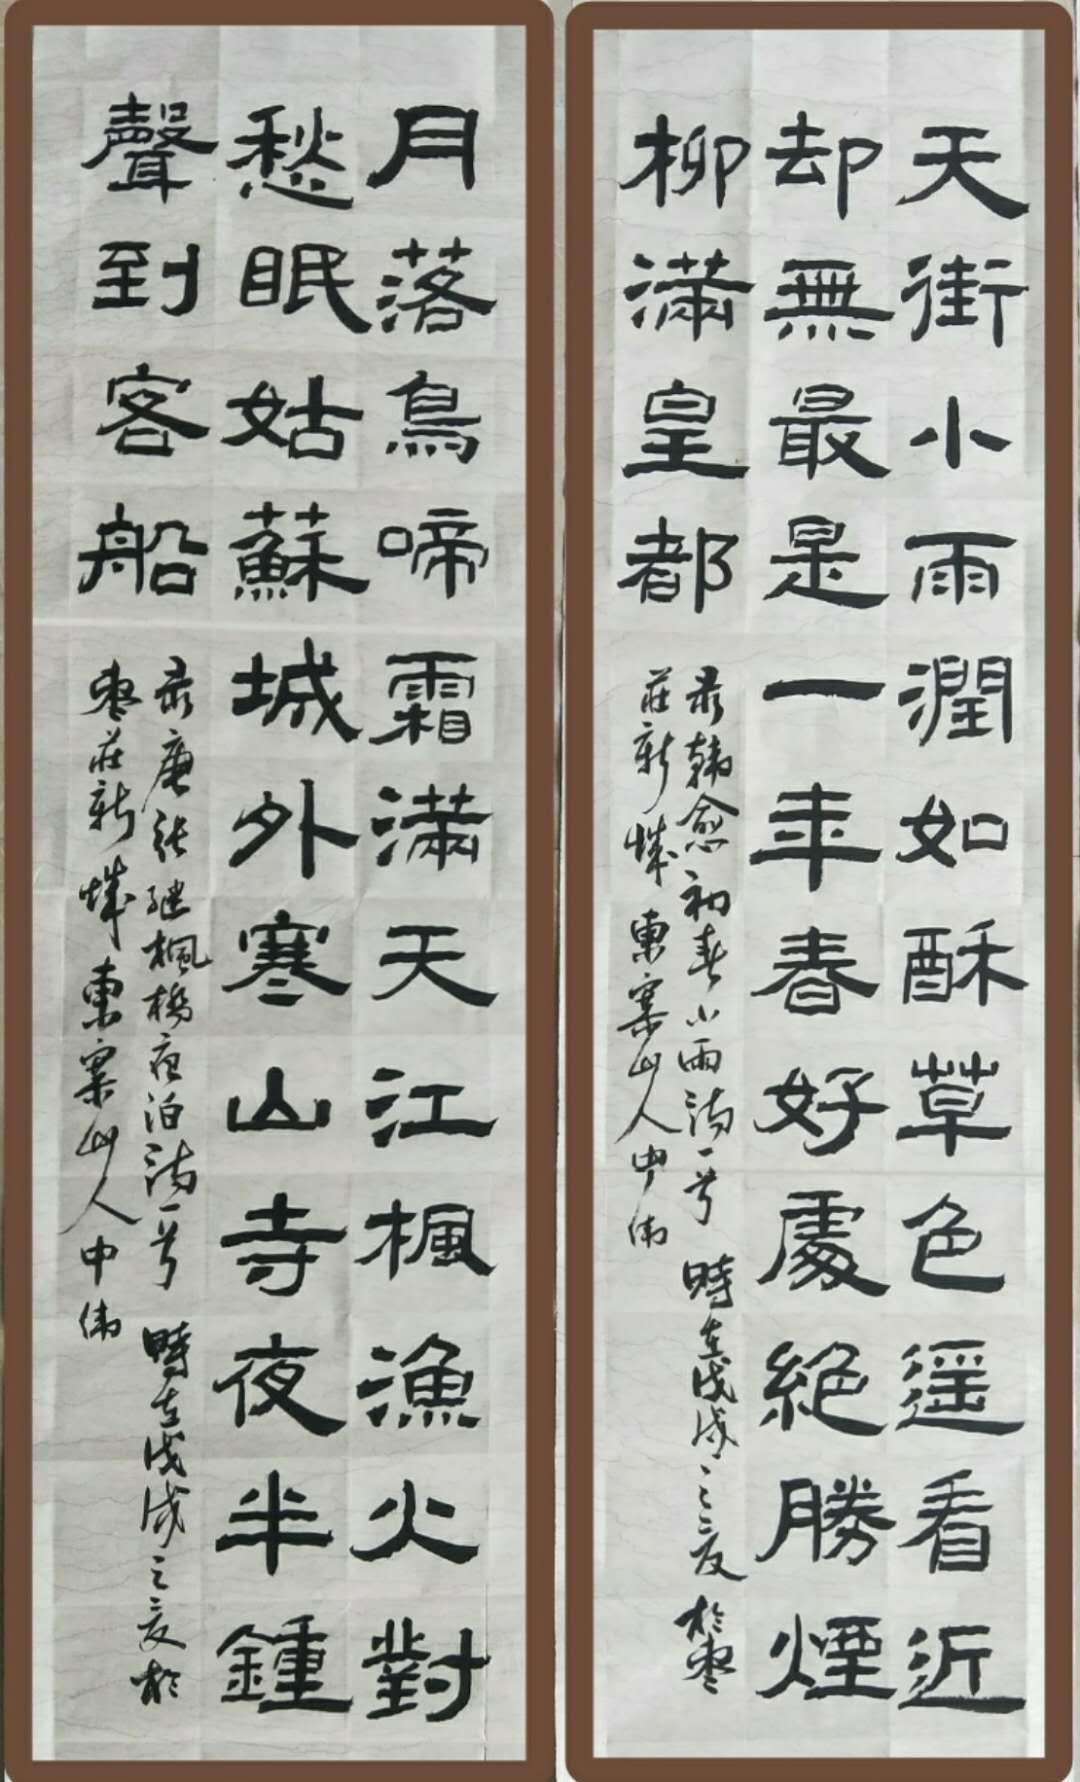 天街小雨潤如酥草色遥看近
却無最是一年春好處絕勝煙
柳滿皇都
录韩愈初春小雨诗一首 時在戊戌之夏於枣
莊新城東寨山人中伟
月落鳥啼霜滿天江楓漁火對
愁眠姑蘇城外寒山寺夜半鍾
聲到客船
录唐张继楓橋夜泊诗一首 時在戊戌之夏於
枣莊新城東寨山人中伟